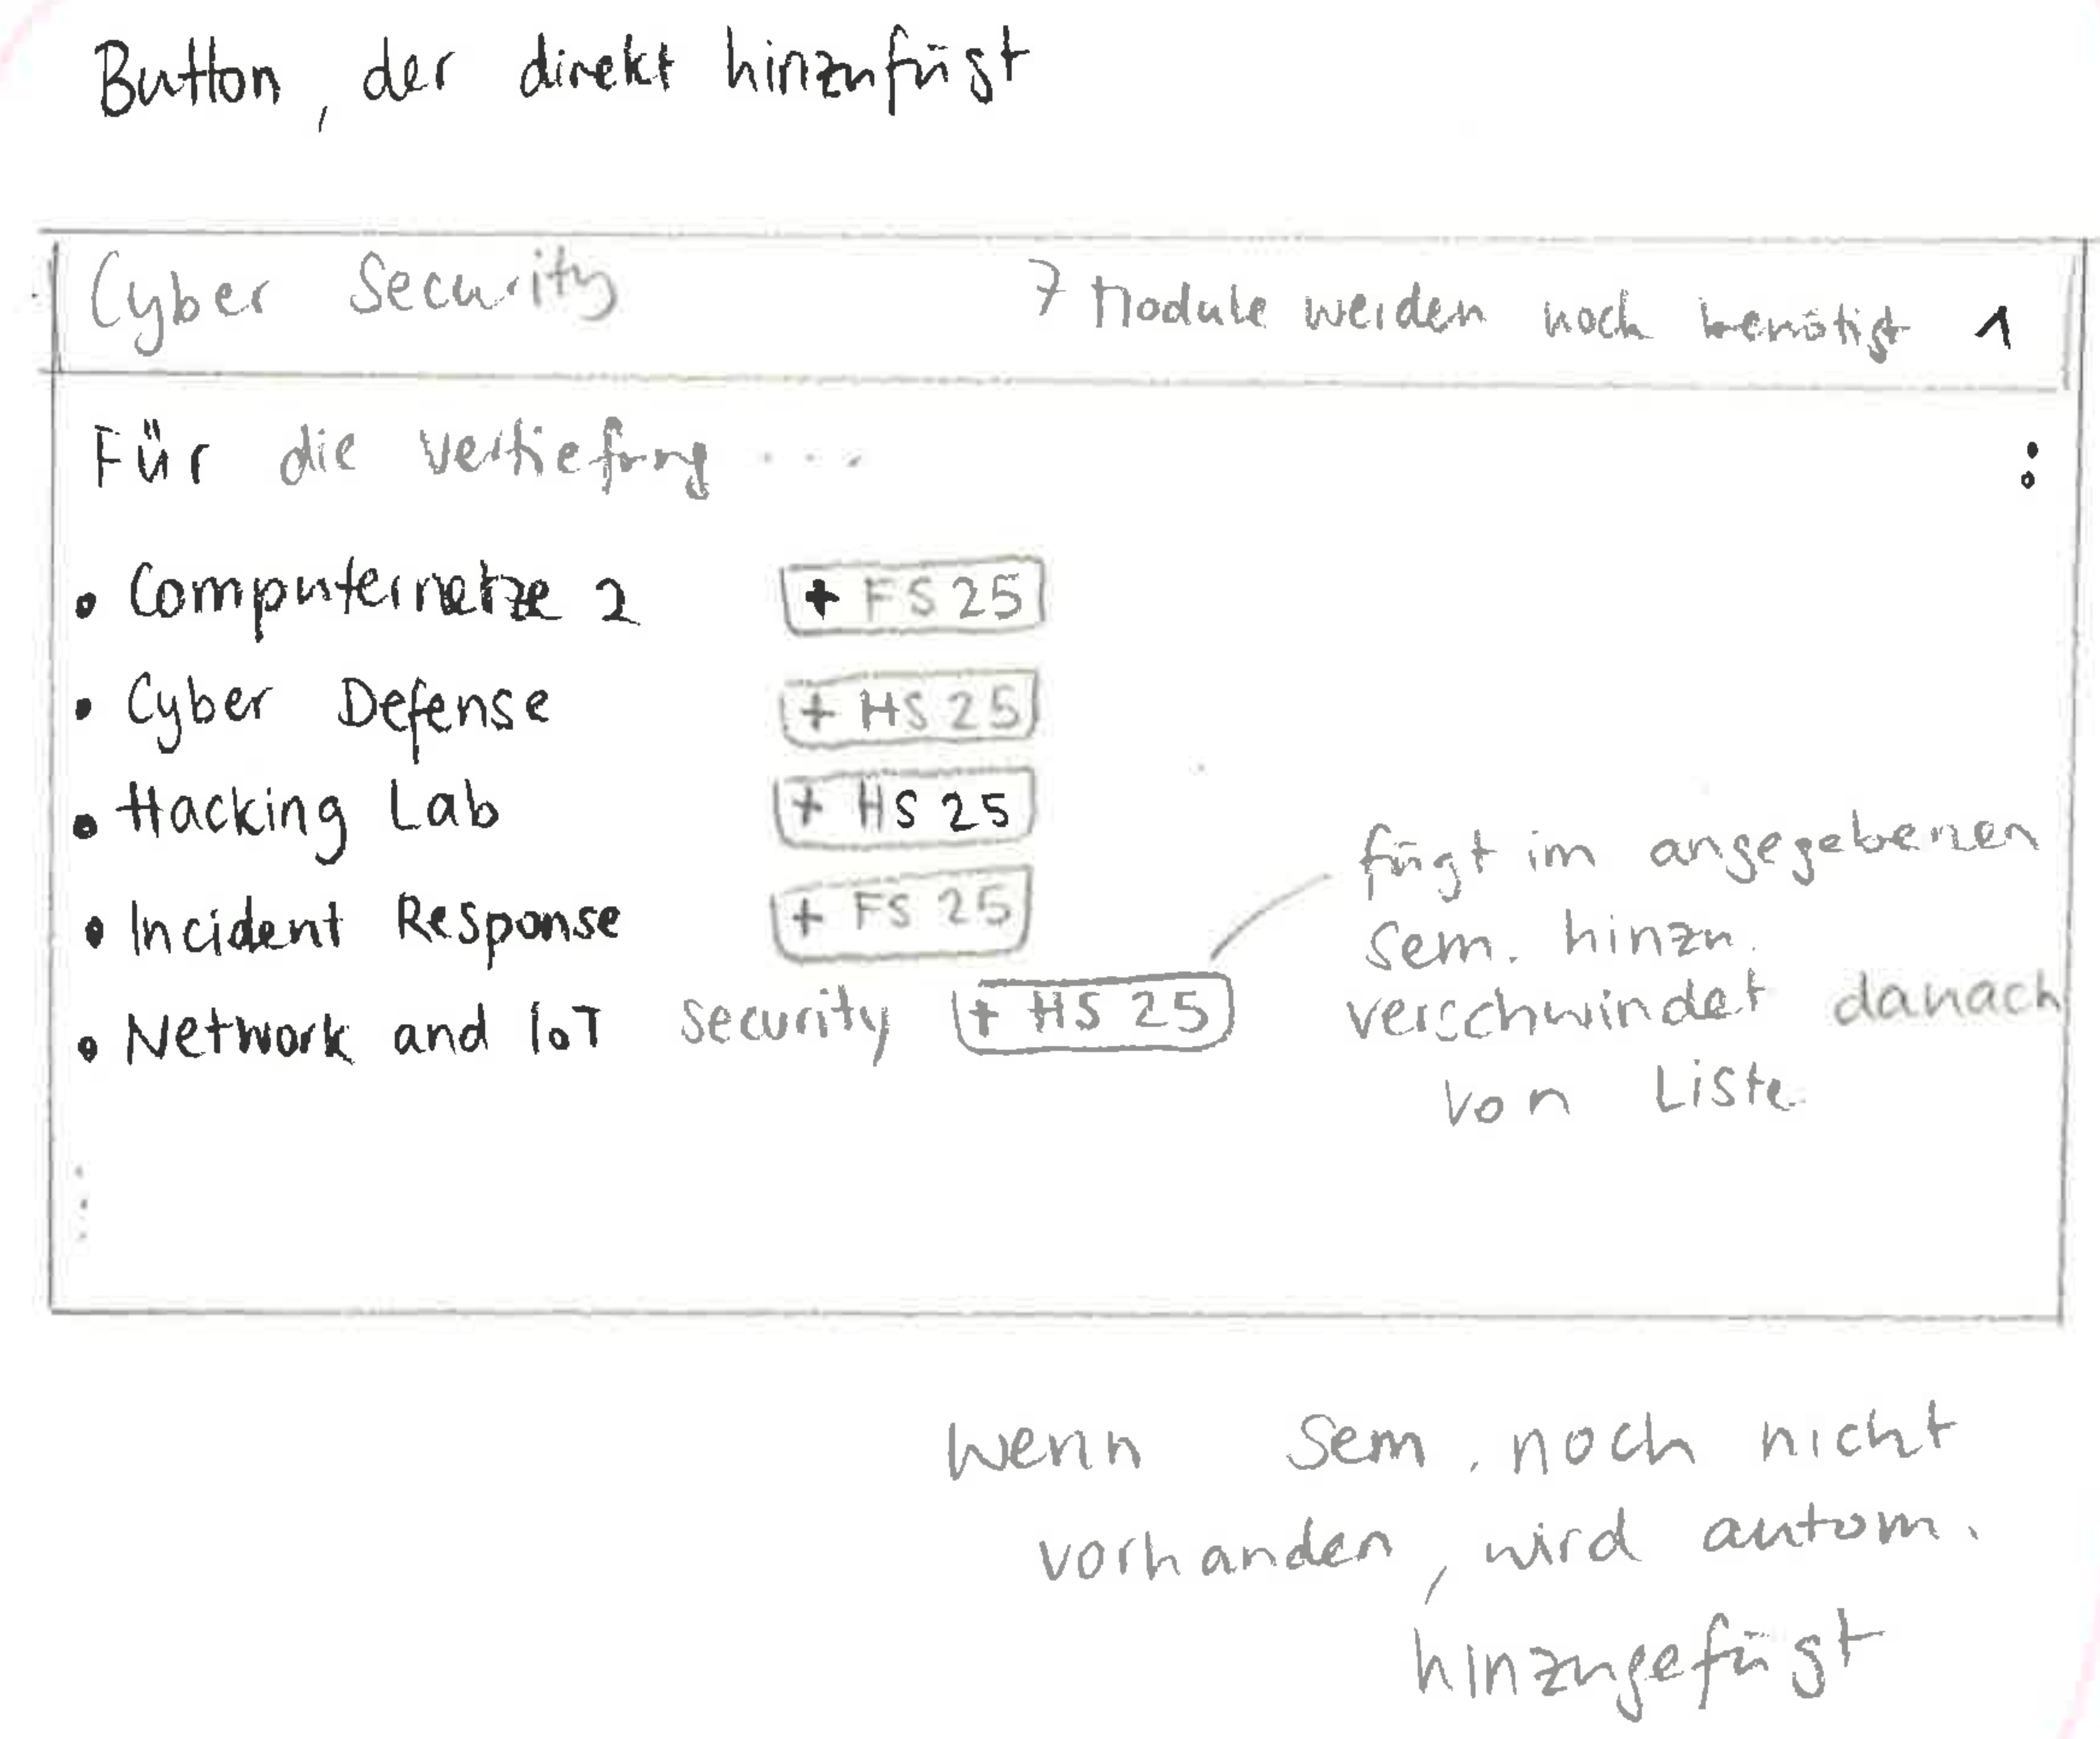 Button, der direkt hinzufügt
Cyber Security 7 Module werden noch benötigt ^
Für die Vertiefung ... :
• Computernetze 2 + FS 25
• Cyber Defense + HS 25
• Hacking Lab + HS 25
• Incident Response + FS 25
• Network and IoT security + HS 25
fügt im angegebenen
Sem. hinzu.
verschwindet danach
von Liste
Wenn Sem. noch nicht
vorhanden, wird autom.
hinzugefügt